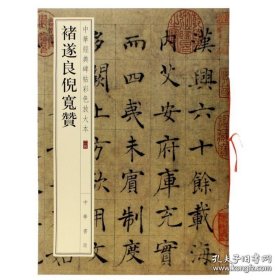 中華經典碑帖彩色放大本
褚遂良倪寬贊
中華書局
漢興六十餘載海
內艾安府庫充實
而四夷未賓制度
孔夫子旧书网